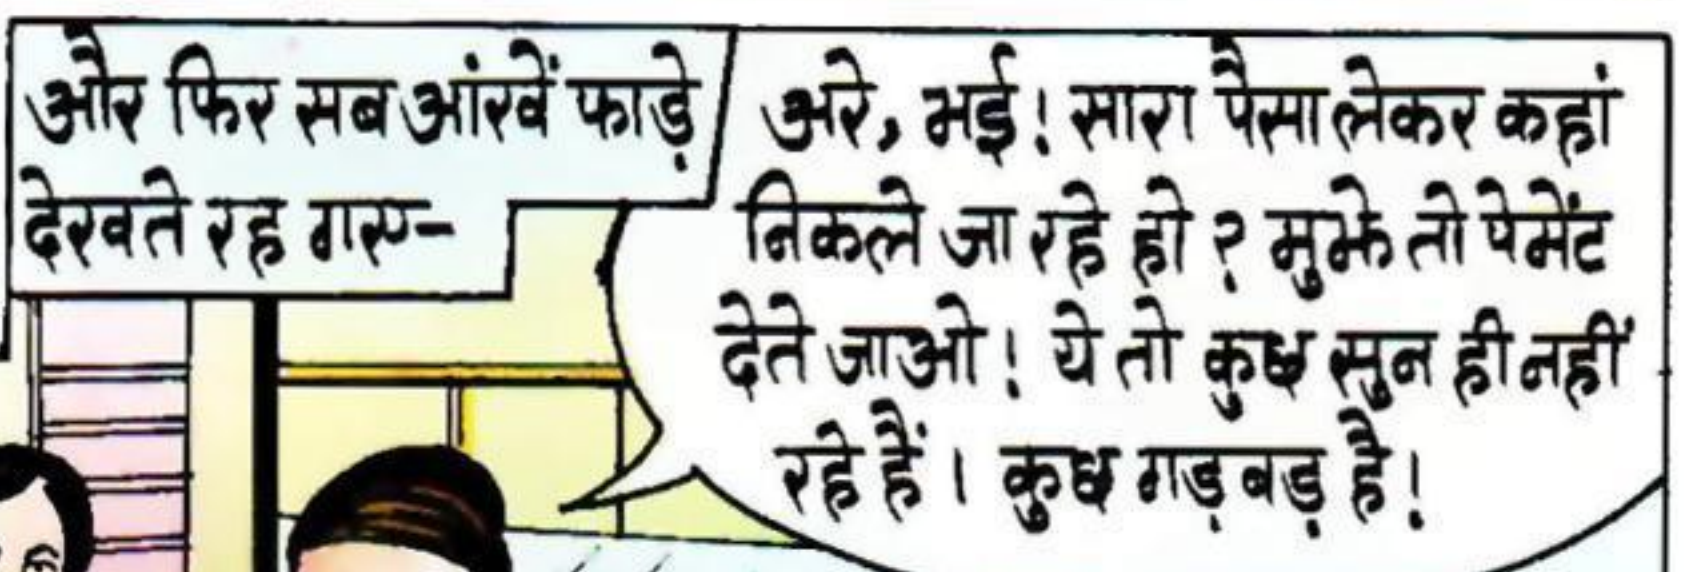 और फिर सब आंखें फाड़े
देखते रह गए-
अरे, भई! सारा पैसा लेकर कहां
निकले जा रहे हो? मुझे तो पेमेंट
देते जाओ! ये तो कुछ सुन ही नहीं
रहे हैं। कुछ गड़बड़ है!